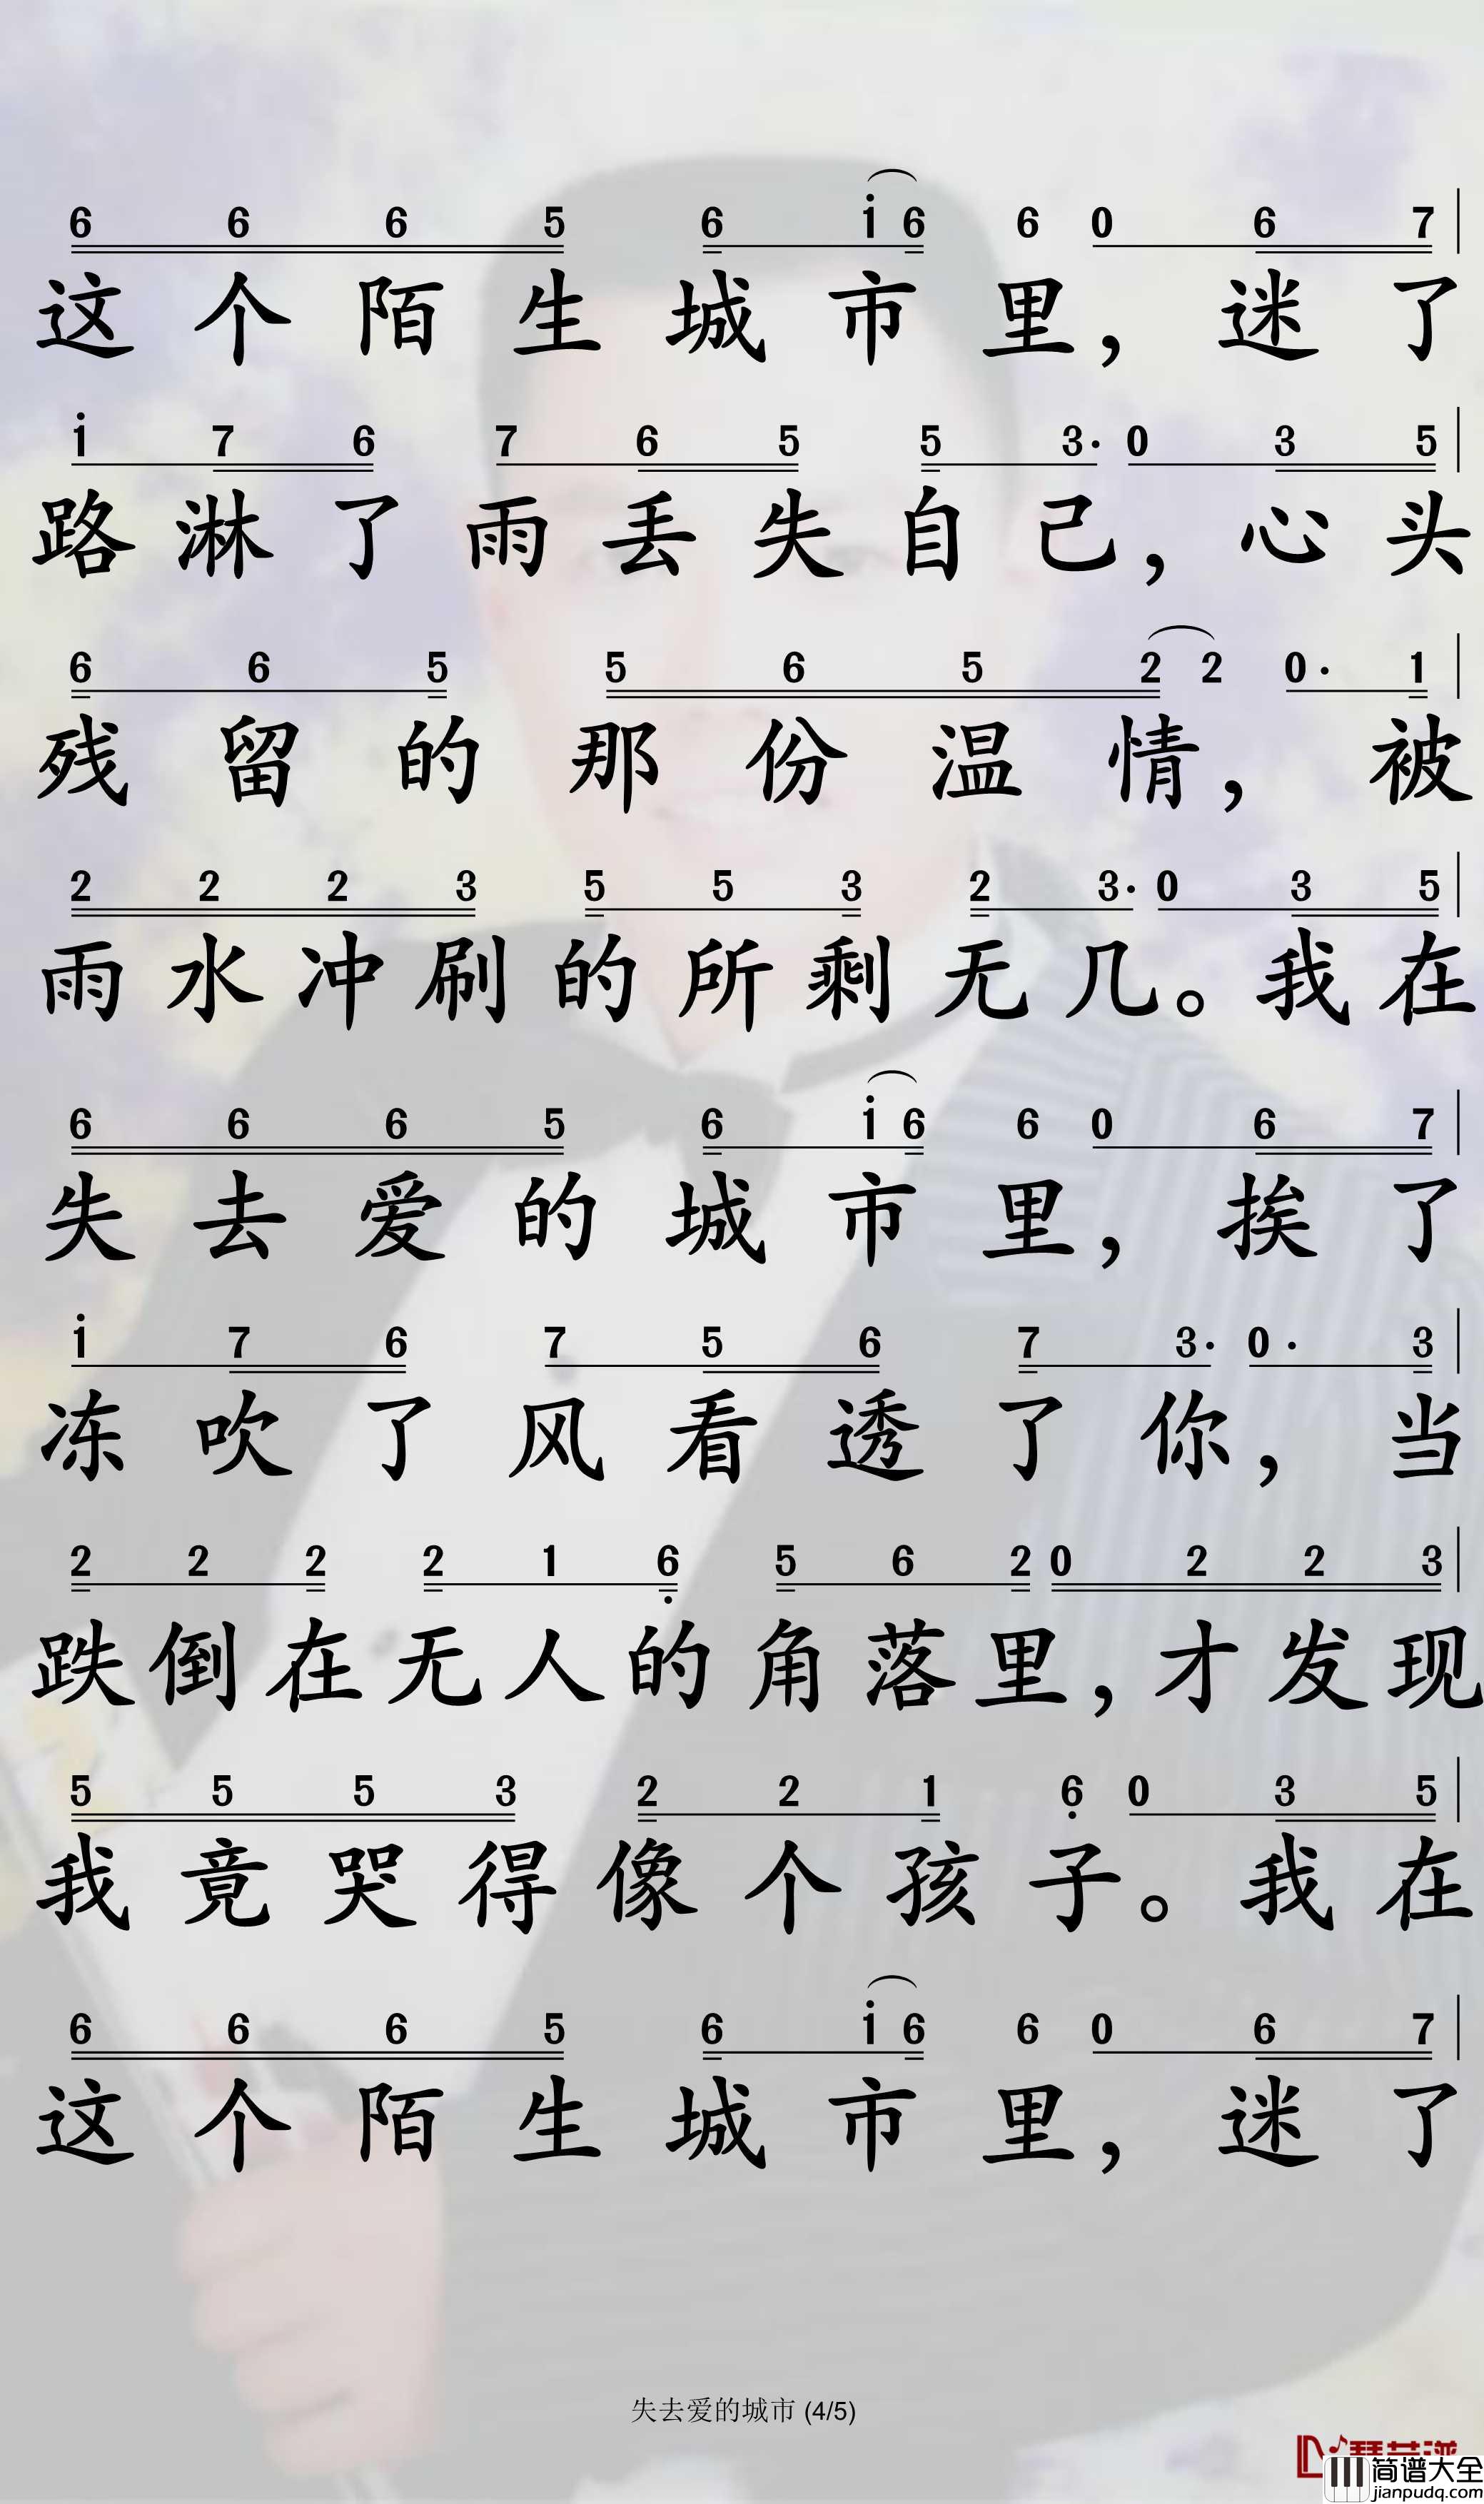 6 6 6 5 6 i 6 6 0 6 7
这个陌生城市里，迷了
i 7 6 7 6 5 5 3· 0 3 5
路淋了雨丢失自己，心头
6 6 5 5 6 5 2 2 0· 1
残留的那份温情，被
2 2 2 3 5 5 3 2 3· 0 3 5
雨水冲刷的所剩无几。我在
6 6 6 5 6 i 6 6 0 6 7
失去爱的城市里，挨了
i 7 6 7 5 6 7 3· 0· 3
冻吹了风看透了你，当
2 2 2 2 1 6̣ 5 6 2 0 2 2 3
跌倒在无人的角落里，才发现
5 5 5 3 2 2 1 6̣ 0 3 5
我竟哭得像个孩子。我在
6 6 6 5 6 i 6 6 0 6 7
这个陌生城市里，迷了
失去爱的城市 (4/5)
简谱大全
jianpudq.com